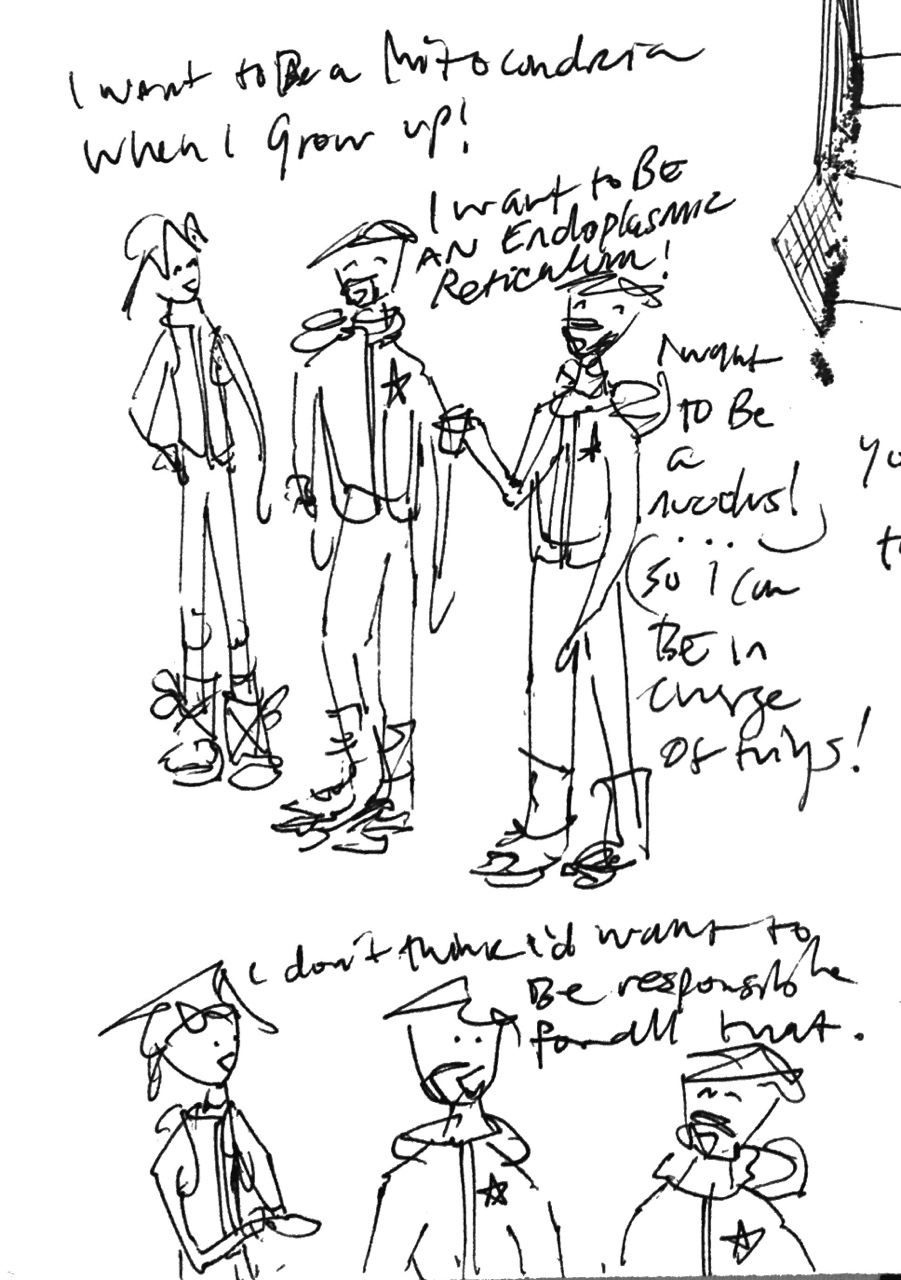 I want to Be a Mitocondria
when I Grow up!
I want to BE
AN Endoplasmic
Reticulum!
I want
TO Be
a
nucleus!
....
So I can
BE in
charge
OF things!
yo
t
I don't think i'd want to
Be responsible
for all that.